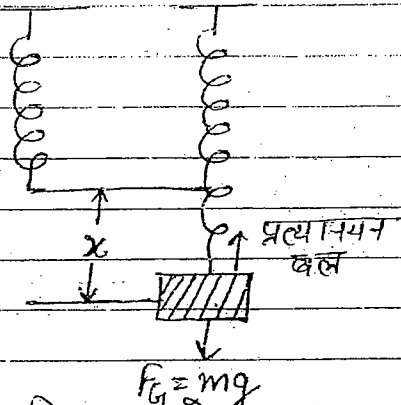 x
प्रत्यानयन
बल
F_G = mg